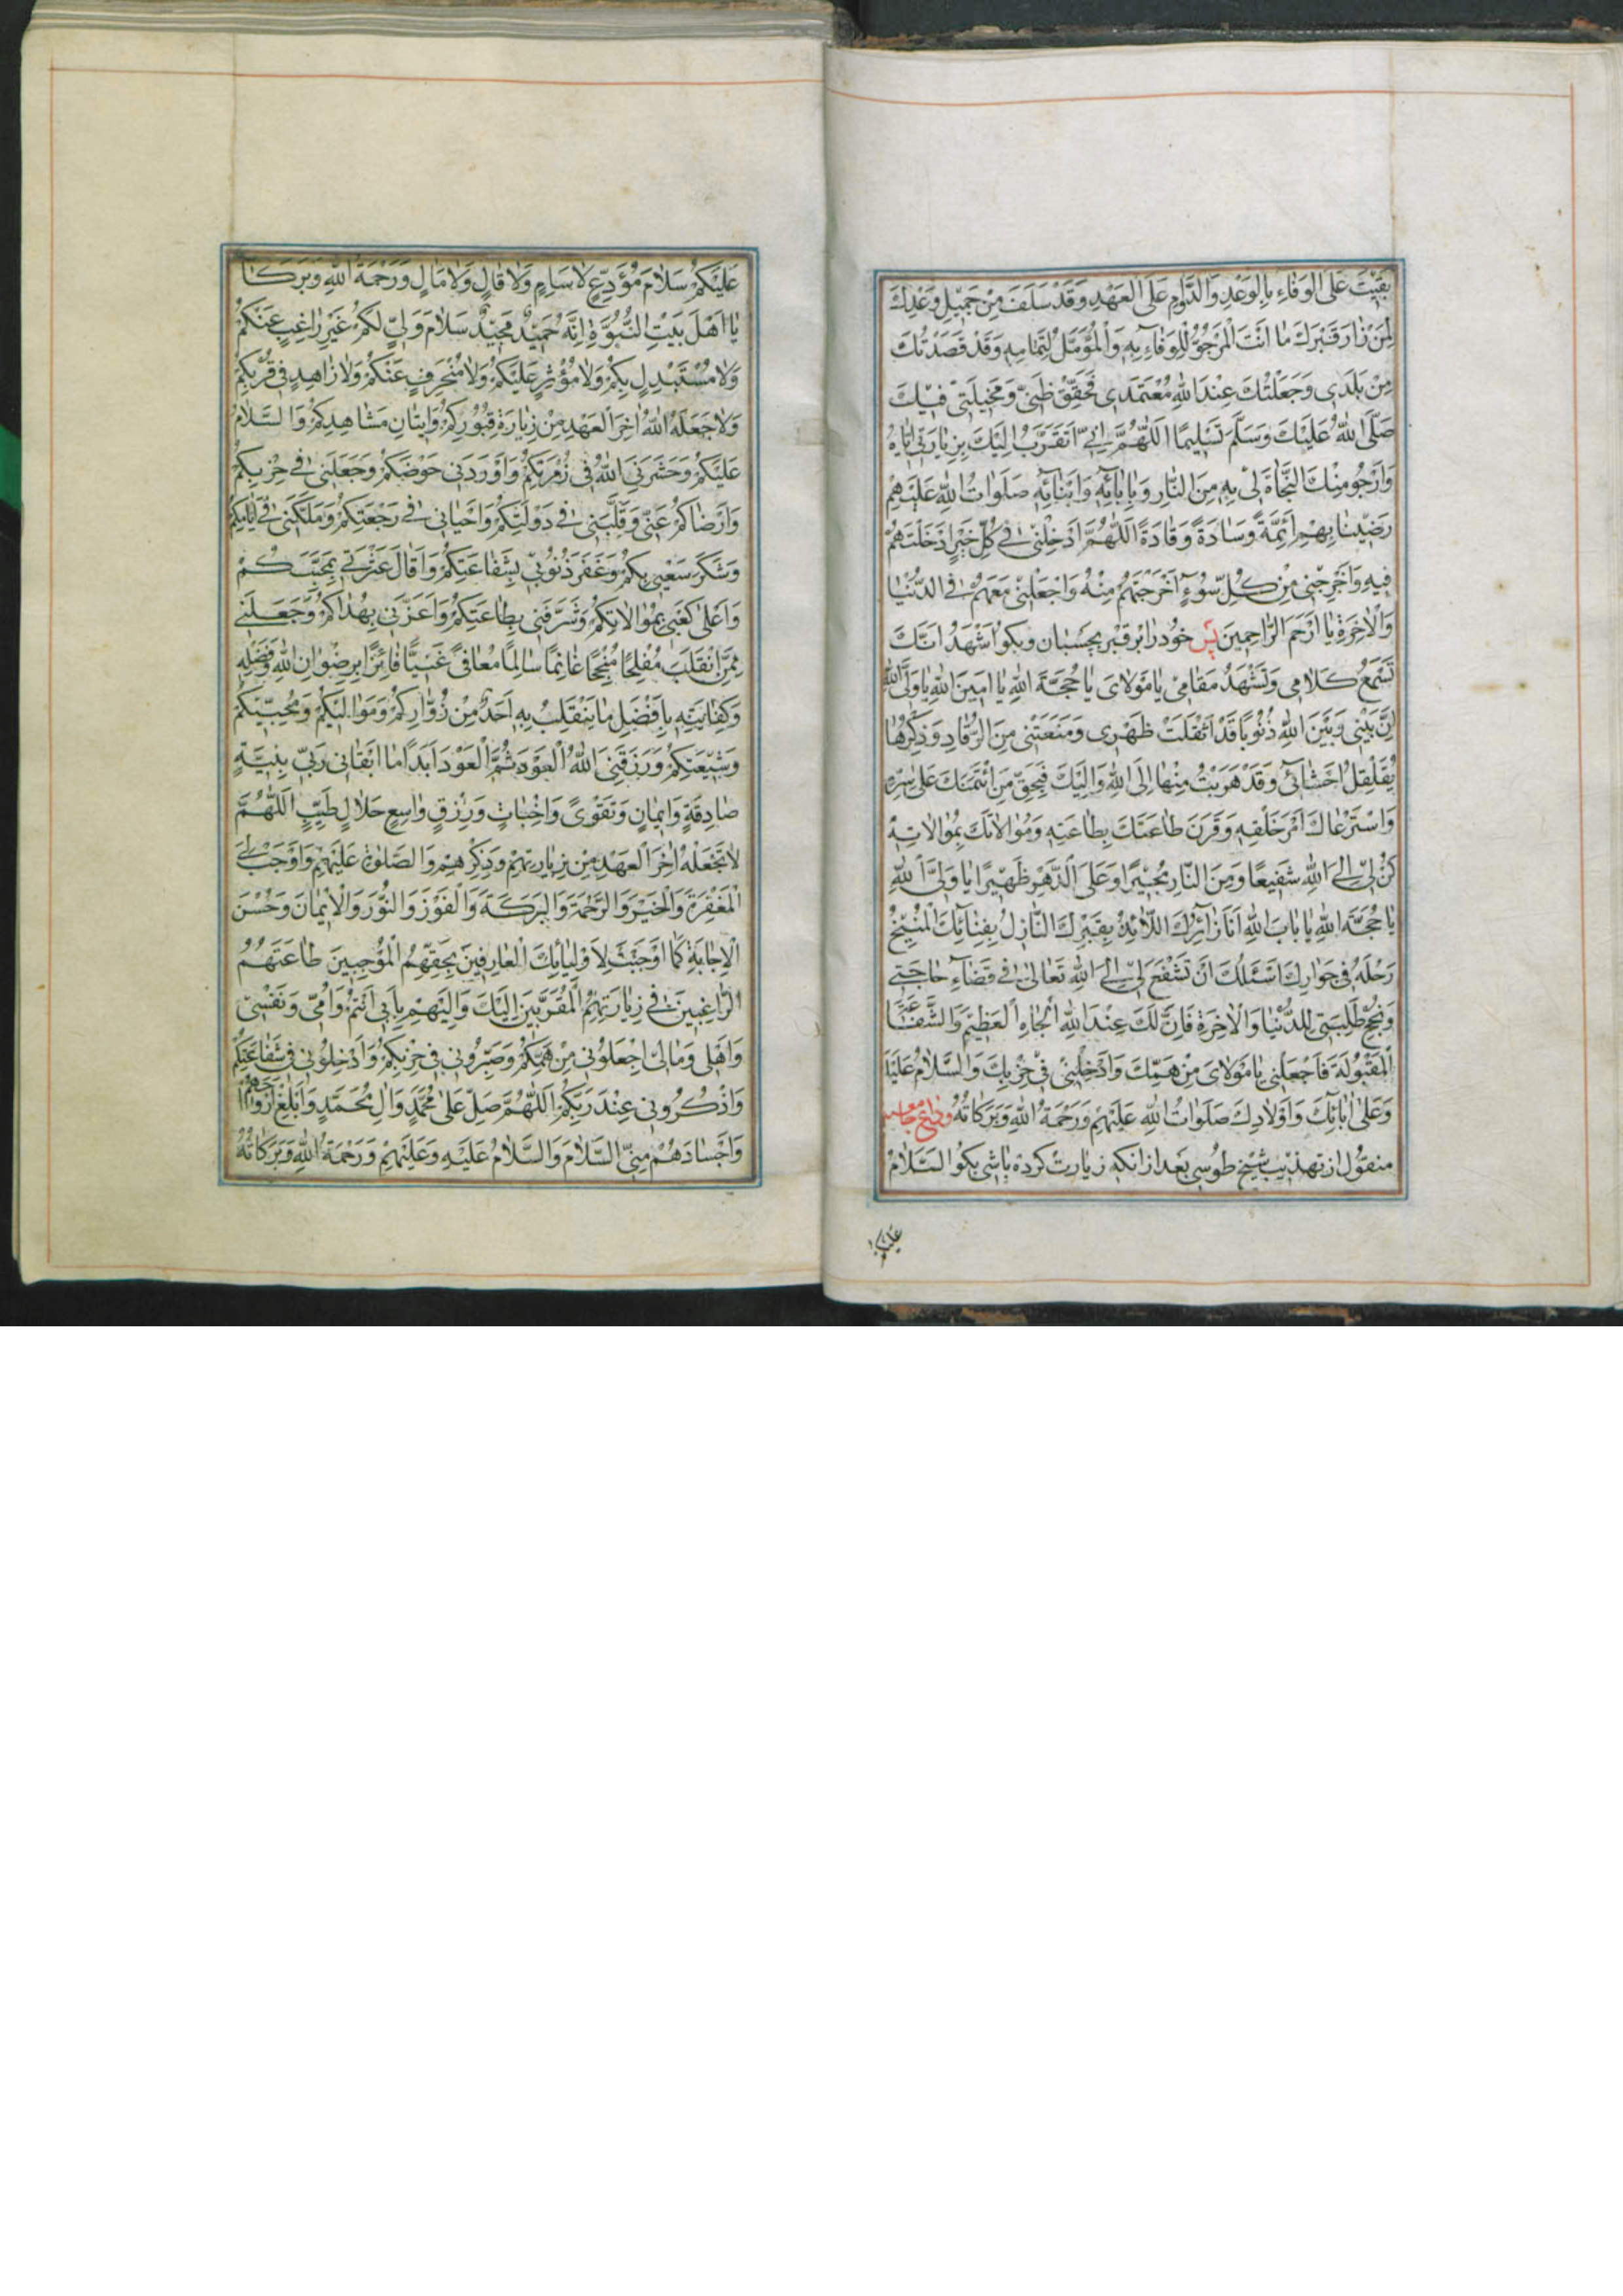 بَقِيْتَ عَلَى الوَفَاءِ بِالوَعْدِ وَالدَّوٰمِ عَلَى العَهْدِ وَقَدْ سَلَفَ مِنْ جَمِيْلِ وَعْدِكَ
لِمَنْ زٰارَ قَبْرَكَ مٰا اَنْتَ الْمَرْجُوُّ لِلْوَفٰاءِ بِهِ وَالْمُؤَمَّلُ لِتَمٰامِهِ وَقَدْ قَصَدْتُكَ
مِنْ بَلَدِى وَجَعَلْتُكَ عِنْدَ اللهِ مُعْتَمَدِى فَحَقِّقْ ظَنِّى وَمَخِيْلَتِى فِيْكَ
صَلَّى اللهُ عَلَيْكَ وَسَلَّمَ تَسْلِيمًا اَللّٰهُمَّ اِنِّى اَتَقَرَّبُ اِلَيْكَ بِزِيٰارَتِى اِيّٰاهُ
وَاَرْجُو مِنْكَ النَّجٰاةَ لِى بِهِ مِنَ النّٰارِ وَبِاٰبٰائِهِ وَاَبْنٰائِهِ صَلَوٰاتُ اللهِ عَلَيْهِمْ
رَضِيْنٰا بِهِمْ اَئِمَّةً وَسٰادَةً وَقٰادَةً اَللّٰهُمَّ اَدْخِلْنِى فِى كُلِّ خَيْرٍ اَدْخَلْتَهُمْ
فِيهِ وَاَخْرِجْنِى مِنْ كُلِّ سُوْءٍ اَخْرَجْتَهُمْ مِنْهُ وَاجْعَلْنِى مَعَهُمْ فِى الدُّنْيٰا
وَالْاٰخِرَةِ يٰا اَرْحَمَ الرّٰاحِمِينَ پس خود را بر قبر بچسبان و بكو اَشْهَدُ اَنَّكَ
تَسْمَعُ كَلٰامِى وَتَشْهَدُ مَقٰامِى يٰا مَوْلٰاىَ يٰا حُجَّةَ اللهِ يٰا اَمِينَ اللهِ يٰا وَلِىَّ اللهِ
اِنَّ بَيْنِى وَبَيْنَ اللهِ ذُنُوبًا قَدْ اَثْقَلَتْ ظَهْرِى وَمَنَعَتْنِى مِنَ الرُّقٰادِ وَذِكْرُهٰا
يُقَلْقِلُ اَحْشٰائِى وَقَدْ هَرَبْتُ مِنْهٰا اِلَى اللهِ وَاِلَيْكَ فَبِحَقِّ مَنِ ائْتَمَنَكَ عَلٰى سِرِّهِ
وَاسْتَرْعٰاكَ اَمْرَ خَلْقِهِ وَقَرَنَ طٰاعَتَكَ بِطٰاعَتِهِ وَمُوٰالٰاتَكَ بِمُوٰالٰاتِهِ
كُنْ لِى اِلَى اللهِ شَفِيعًا وَمِنَ النّٰارِ مُجِيْرًا وَعَلَى الدَّهْرِ ظَهِيْرًا يٰا وَلِىَّ اللهِ
يٰا حُجَّةَ اللهِ يٰا بٰابَ اللهِ اَنَا زٰائِرُكَ اللّٰائِذُ بِقَبْرِكَ النّٰازِلُ بِفِنٰائِكَ الْمُنِيْخُ
رَحْلَهُ فِى جَوٰارِكَ اَسْئَلُكَ اَنْ تَشْفَعَ لِى اِلَى اللهِ تَعٰالٰى فِى قَضٰاءِ حٰاجَتِى
وَنُجْحِ طَلِبَتِى لِلدُّنْيٰا وَالْاٰخِرَةِ فَاِنَّ لَكَ عِنْدَ اللهِ الْجٰاهَ الْعَظِيْمَ وَالشَّفٰاعَةَ
الْمَقْبُولَةَ فَاجْعَلْنِى يٰا مَوْلٰاىَ مِنْ هَمِّكَ وَاَدْخِلْنِى فِى حِزْبِكَ وَالسَّلٰامُ عَلَيْكَ
وَعَلٰى اٰبٰائِكَ وَاَوْلٰادِكَ صَلَوٰاتُ اللهِ عَلَيْهِمْ وَرَحْمَةُ اللهِ وَبَرَكٰاتُهُ وداع جامعه
منقول از تهذيب شيخ طوسى بعد از انكه زيارت كرده باشى بكو السَّلٰامُ
عَلَيْكُمْ
عَلَيْكُمْ سَلٰامَ مُوَدِّعٍ لٰا سَاِمٍ وَلٰا قٰالٍ وَلٰا مٰالٍ وَرَحْمَةُ اللهِ وَبَرَكٰا
يٰا اَهْلَ بَيْتِ النُّبُوَّةِ اِنَّهُ حَمِيْدٌ مَجِيْدٌ سَلٰامَ وَلِىٍّ لَكُمْ غَيْرِ رٰاغِبٍ عَنْكُمْ
وَلٰا مُسْتَبْدِلٍ بِكُمْ وَلٰا مُؤْثِرٍ عَلَيْكُمْ وَلٰا مُنْحَرِفٍ عَنْكُمْ وَلٰا زٰاهِدٍ فِى قُرْبِكُمْ
وَلٰا جَعَلَهُ اللهُ اٰخِرَ الْعَهْدِ مِنْ زِيٰارَةِ قُبُوْرِكُمْ وَاِتْيٰانِ مَشٰاهِدِكُمْ وَالسَّلٰامُ
عَلَيْكُمْ وَحَشَرَنِىَ اللهُ فِى زُمْرَتِكُمْ وَاَوْرَدَنِى حَوْضَكُمْ وَجَعَلَنِى فِى حِزْبِكُمْ
وَاَرْضٰاكُمْ عَنِّى وَقَلَّبَنِى فِى دَوْلَتِكُمْ وَاَحْيٰانِى فِى رَجْعَتِكُمْ وَمَلَّكَنِى فِى اَيّٰامِكُمْ
وَشَكَرَ سَعْيِى بِكُمْ وَغَفَرَ ذُنُوْبِى بِشَفٰاعَتِكُمْ وَاَقٰالَ عَثْرَتِى بِمَحَبَّتِكُمْ
وَاَعْلٰى كَعْبِى بِمُوٰالٰاتِكُمْ وَشَرَّفَنِى بِطٰاعَتِكُمْ وَاَعَزَّنِى بِهُدٰاكُمْ وَجَعَلَنِى
مِمَّنِ انْقَلَبَ مُفْلِحًا مُنْجِحًا غٰانِمًا سٰالِمًا مُعٰافًى غَنِيًّا فٰائِزًا بِرِضْوٰانِ اللهِ وَفَضْلِهِ
وَكِفٰايَتِهِ بِاَفْضَلِ مٰا يَنْقَلِبُ بِهِ اَحَدٌ مِنْ زُوّٰارِكُمْ وَمَوٰالِيْكُمْ وَمُحِبِّيْكُمْ
وَشِيْعَتِكُمْ وَرَزَقَنِىَ اللهُ الْعَوْدَ ثُمَّ الْعَوْدَ اَبَدًا مٰا اَبْقٰانِى رَبِّى بِنِيَّةٍ
صٰادِقَةٍ وَاِيمٰانٍ وَتَقْوٰى وَاِخْبٰاتٍ وَرِزْقٍ وٰاسِعٍ حَلٰالٍ طَيِّبٍ اَللّٰهُمَّ
لٰا تَجْعَلْهُ اٰخِرَ الْعَهْدِ مِنْ زِيٰارَتِهِمْ وَذِكْرِهِمْ وَالصَّلٰوةِ عَلَيْهِمْ وَاَوْجِبْ لِى
الْمَغْفِرَةَ وَالْخَيْرَ وَالرَّحْمَةَ وَالْبَرَكَةَ وَالْفَوْزَ وَالنُّوْرَ وَالْاِيْمٰانَ وَحُسْنَ
الْاِجٰابَةِ كَمٰا اَوْجَبْتَ لِاَوْلِيٰائِكَ الْعٰارِفِيْنَ بِحَقِّهِمُ الْمُوْجِبِيْنَ طٰاعَتَهُمْ
الرّٰاغِبِيْنَ فِى زِيٰارَتِهِمُ الْمُقَرَّبِيْنَ اِلَيْكَ وَاِلَيْهِمْ بِاَبِى اَنْتُمْ وَاُمِّى وَنَفْسِى
وَاَهْلِى وَمٰالِى اِجْعَلُوْنِى مِنْ هَمِّكُمْ وَصَيِّرُوْنِى فِى حِزْبِكُمْ وَاَدْخِلُوْنِى فِى شَفٰاعَتِكُمْ
وَاذْكُرُوْنِى عِنْدَ رَبِّكُمْ اَللّٰهُمَّ صَلِّ عَلٰى مُحَمَّدٍ وَاٰلِ مُحَمَّدٍ وَاَبْلِغْ اَرْوٰاحَهُمْ
وَاَجْسٰادَهُمْ مِنِّى السَّلٰامَ وَالسَّلٰامُ عَلَيْهِ وَعَلَيْهِمْ وَرَحْمَةُ اللهِ وَبَرَكٰاتُهُ